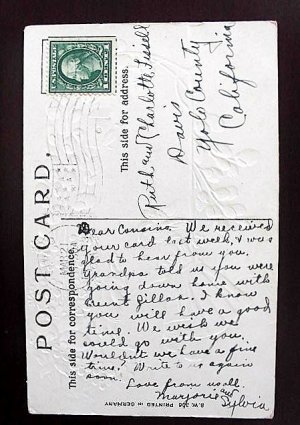 POST CARD.
This side for correspondence.
This side for address.
Dear Cousins. We received
your card last week, & was
glad to hear from you.
Grandpa told us you were
going down home with
Aunt Lillon. I know
you will have a good
time. We wish we
could go with you.
Wouldn't we have a fine
time? Write to us again
soon.
Love from us all.
Marjorie and
Sylvia
Ruth and Charlotte
Davis
Yolo County
California
S.W. 306 PRINTED IN GERMANY